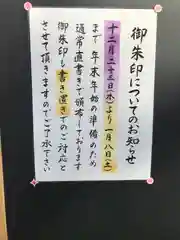 御朱印についてのお知らせ
十二月二十三日(水)より一月八日(土)
まで 年末年始の準備のため
通常直書きで頒布しております
御朱印も書き置きでのご対応と
させて頂きますのでご了承下さい